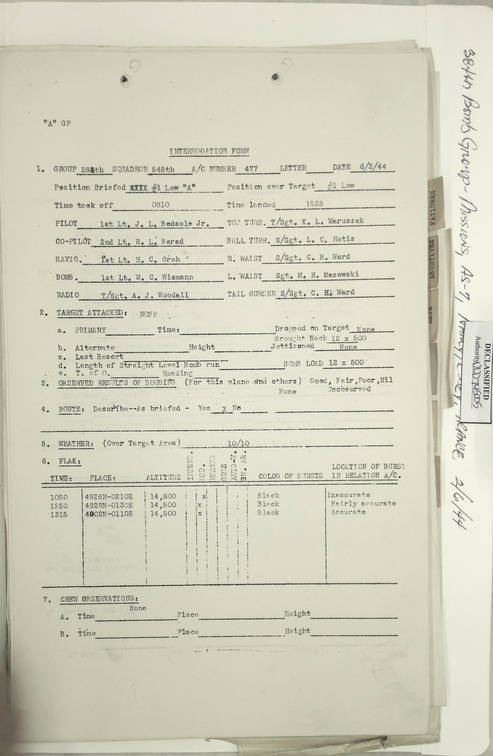 "A" GP
INTERROGATION FORM
1. GROUP 384th SQUADRON 545th A/C NUMBER 477 LETTER DATE 6/2/44
Position Briefed XXXX #1 Low "A" Position over Target #1 Low
Time took off 0810 Time landed 1535
PILOT 1st Lt. J. L. Bedsole Jr. TOP TURR. T/Sgt. K. L. Maruszak
CO-PILOT 2nd Lt. R. L. Nerad BALL TURR. S/Sgt. L. C. Hotis
NAVIG. 1st Lt. H. C. Groh R. WAIST S/Sgt. C. H. Ward
BOMB. 1st Lt. W. C. Wismann L. WAIST Sgt. M. H. Mazewski
RADIO T/Sgt. A. J. Woodall TAIL GUNNER S/Sgt. C. H. Ward
2. TARGET ATTACKED: NONE
a. PRIMARY Time: Dropped on Target None
Brought Back 12 x 500
b. Alternate Height Jettisoned None
c. Last Resort
d. Length of Straight Level Bomb run BOMB LOAD 12 x 500
e. T. of O. Heading
3. OBSERVED RESULTS OF BOMBING (For this plane and others) Good, Fair, Poor, Nil
None Unobserved
4. ROUTE: Describe--As briefed - Yes x No
5. WEATHER: (Over Target Area) 10/10
6. FLAK:
TIME: PLACE: ALTITUDE INTENSE. MOD. MEAGER GUNS AUTO-W. SM. AR. COLOR OF BURSTS LOCATION OF BURST IN RELATION A/C.
1050 4926N-0210E 14,600 x Black Inaccurate
1250 4828N-0130E 14,500 x Black Fairly accurate
1315 4902N-0110E 14,500 x Black Accurate
7. CREW OBSERVATIONS:
None
A. Time Place Height
B. Time Place Height
384th Bomb Group - Missions,
2/6/44
FAILURES
DECLASSIFIED
Authority